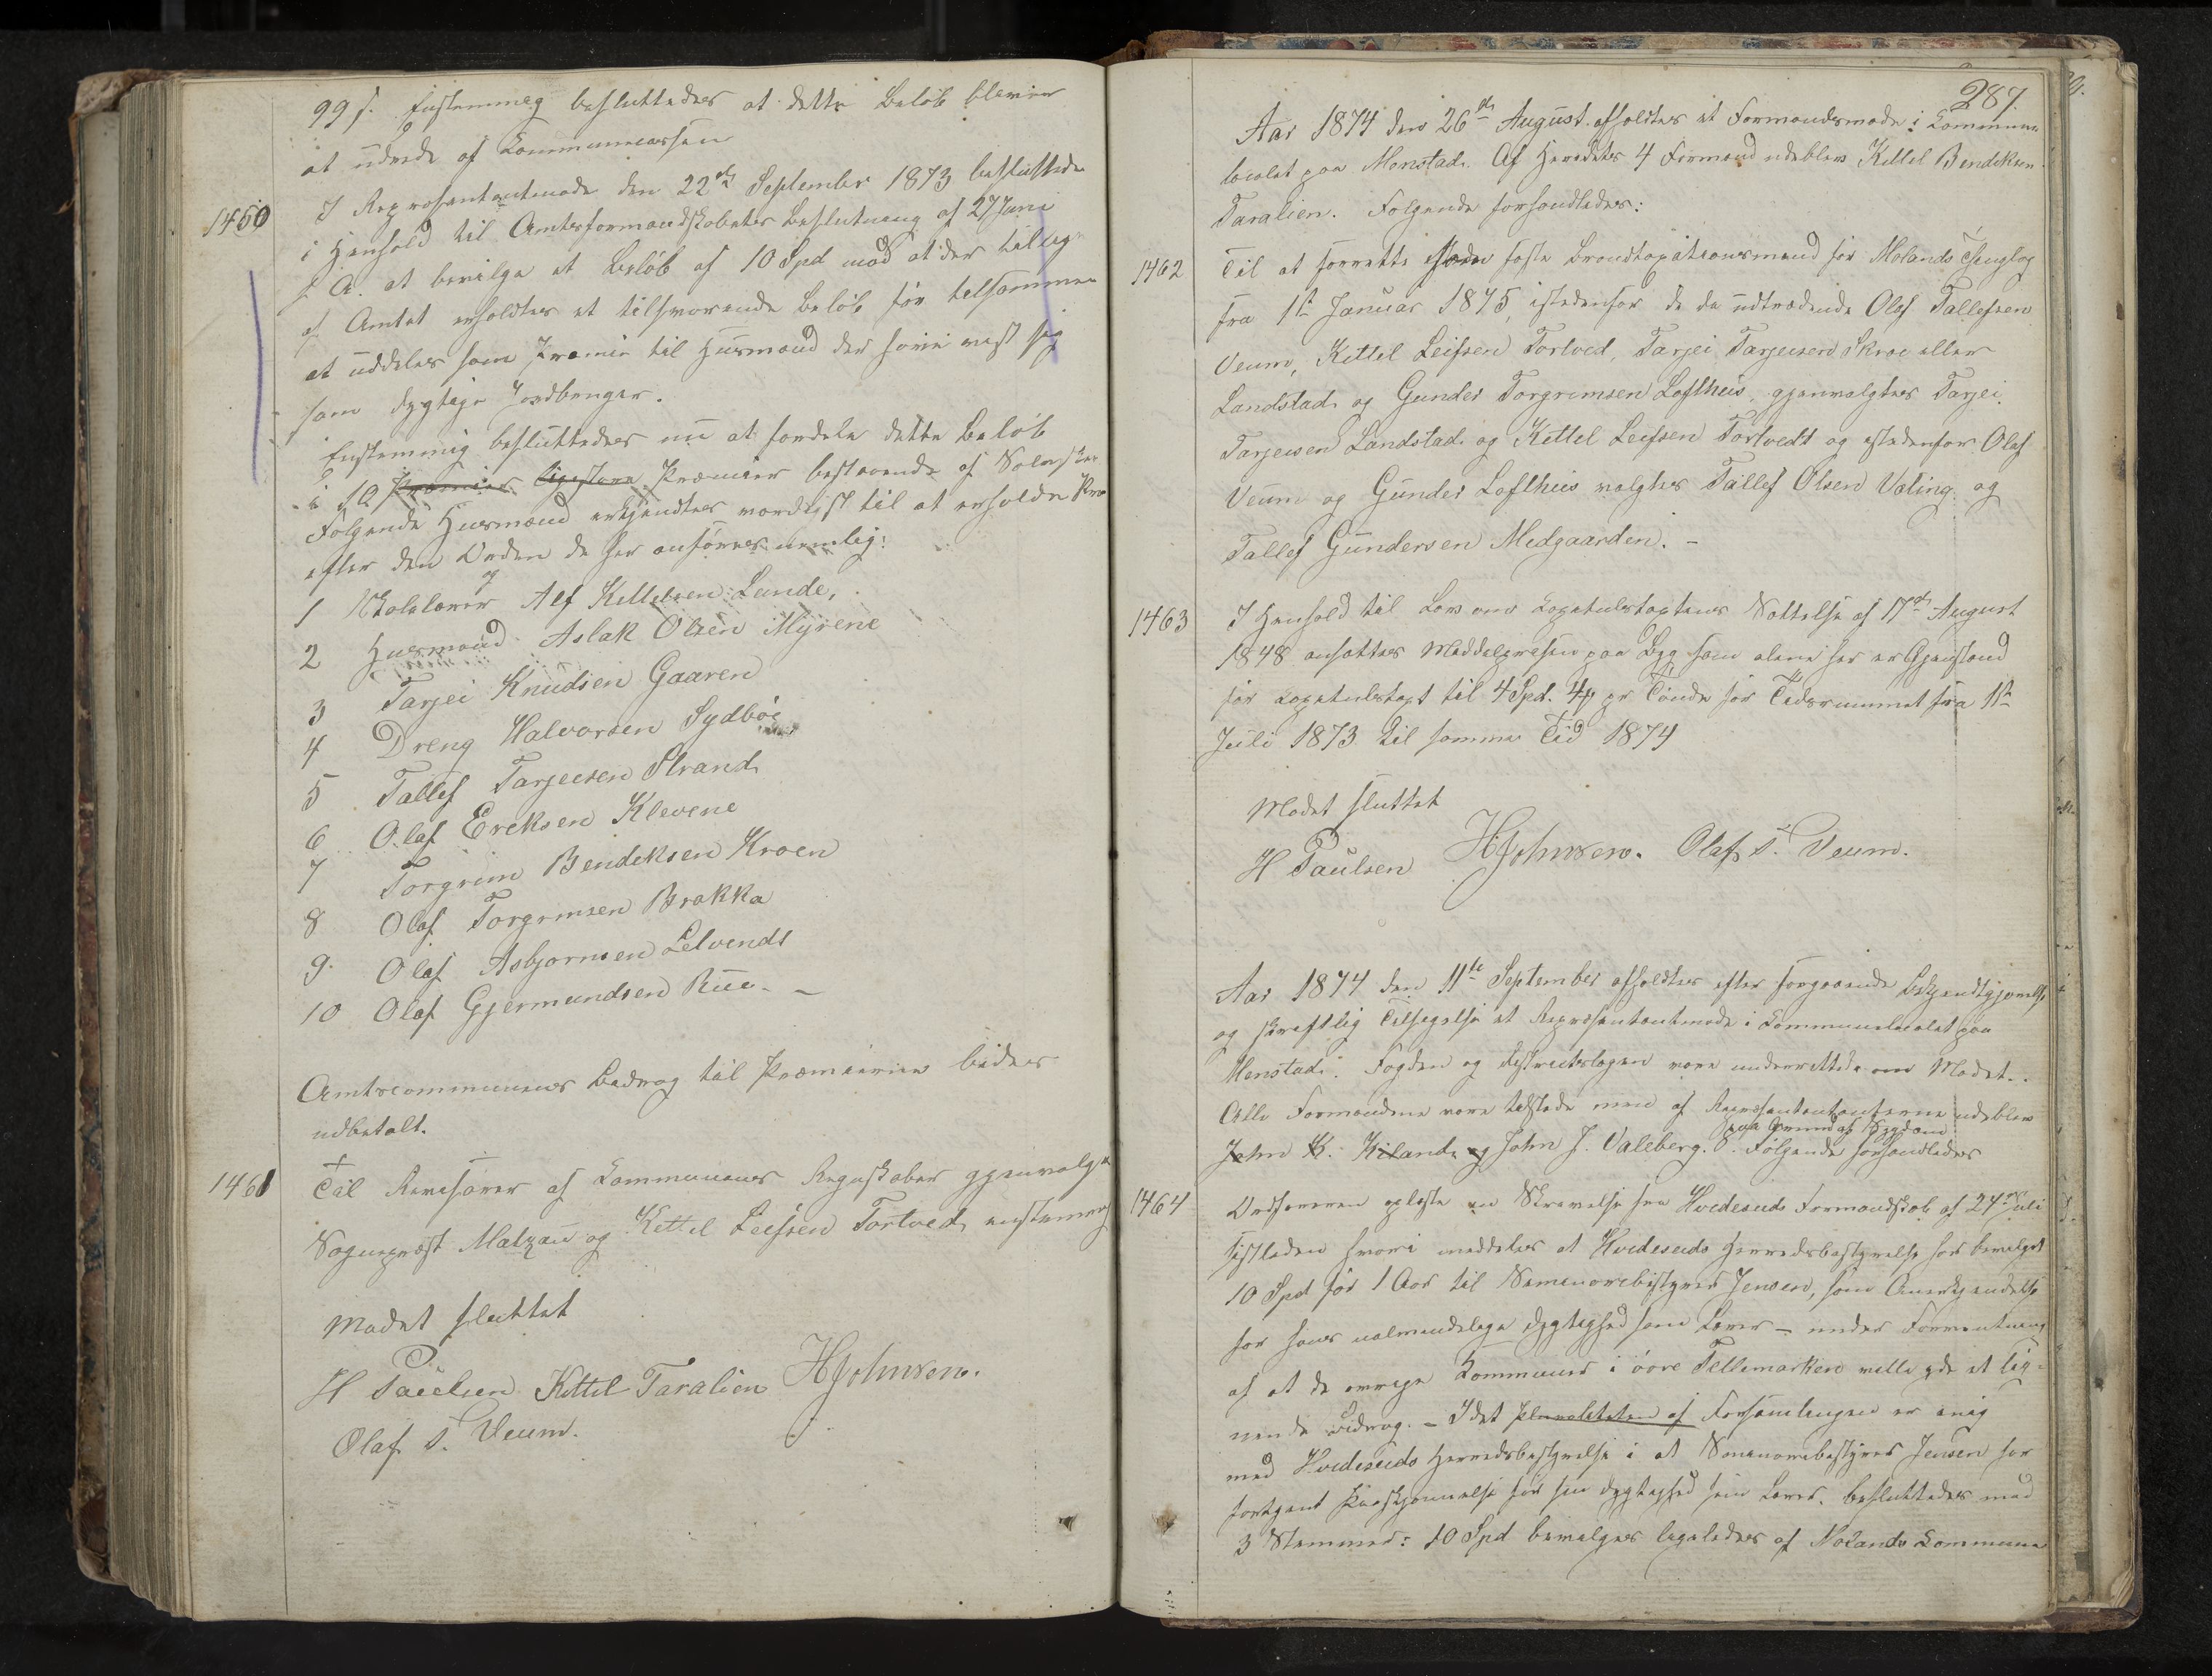 99 s. Enstemmig besluttedes at dette Beløb bliver
at udrede af Kommunecassen
1460 I Repræsentantmøde den 22de September 1873 besluttede
i Henhold til Amtsformandskabets Beslutning af 27 Juni
s. A. at bevilge et Beløb af 10 Spd mod at der tillige
af Amtet erholdtes et tilsvarende Beløb for tilsammen
at uddeles som Præmie til Husmænd der have vist sig
som dygtige Jordbruger.
Enstemmig besluttedes nu at fordele dette Beløb
i 10 Præmier ligestore Præmier bestaaende af Sølvskeer
Følgende Husmænd erkjendtes værdigst til at erholde Præ
efter den Orden de her anføres nemlig:
1 Skolelærer og Alf Kittelsen Lunde,
2 Husmand Aslak Olsen Myrene
3 Tarjei Knudsen Gaaren
4 Dreng Halvorsen Sydbøe
5 Tallef Tarjeisen Strand
6 Olaf Ereksen Klevene
7 Torgrim Bendeksen Kroen
8 Olaf Torgrimsen Brokka
9. Olaf Asbjørnsen Lelvendt
10 Olaf Gjermundsen Rue. –
Amtscommunens Bidrag til Præmierne bedes
udbetalt.
1461 Til Revisorer af Kommunens Regnskaber gjenvalgte
Sogneprest Malzau og Kittel Leifsen Tortved enstemmig
Mødet sluttet
H Paulsen Kittel Taralien HJohnsen.
Olaf S. Veum.
287.
Aar 1874 den 26de August afholdtes et Formandsmøde i Kommune
localet paa Monstad. Af Heredets 4 Formænd udeblev Kittel Bendiksen
Taralien. Følgende forhandledes:
1462 Til at forrette som faste Brandtaxationsmænd for Molands Thinglag
fra 1te Januar 1875, istedenfor de da udtrædende Olaf Tallefsen
Veum, Kittel Leifsen Tortved, Tarjei Tarjeisen Skroe eller
Landstad og Gunder Torgrimsen Lofthuis, gjenvalgtes Tarjei
Tarjeisen Landstad og Kittel Leifsen Tortvedt og istedenfor Olaf
Veum og Gunder Lofthuis valgtes Tallef Olsen Valing og
Tallef Gundersen Midgaarden. –
1463 I Henhold til Lov om Kapitulstaxtens Sættelse af 17de August
1848 ansattes Middelprisen paa Byg som alene her er Gjenstand
for Kapitulstaxt til 4 Spd. 4 pr Tønde for Tidsrummet fra 1te
Juli 1873 til samme Tid 1874
Mødet sluttet
H Paulsen HJohnsen. Olaf S. Veum.
Aar 1874 den 11te September afholdtes efter forgaaende Bekjendtgjørelse
og skriftlig Tilsigelse et Repræsentantmøde i Kommunelocalet paa
Monstad. Fogden og Distriktslægen vare underrettede om Mødet.
Alle Formændene vare tilstede men af Repræsentantanterne udeblev
John K. Kiland og John J. Valeberg. paa Grund af Sygdom. Følgende forhandledes
1464 Ordføreren oplæste en Skrivelse fra Hvideseids Formandskab af 24de Juli
sistleden hvori meddeles at Hvideseids Herredsbestyrelse har bevilget
10 Spd for 1 Aar til Seminariebestyrer Jensen, som Anerkjendelse
for hans ualmindelige Dygtighed som Lærer – under Forventning
af at de øvrige Kommuner i øvre Tellemarken ville yde et lig-
nende Bidrag. – Idet Pluraliteten af Forsamlingen er enig
med Hvideseids Herredsbestyrelse i at Seminariebestyrer Jensen har
fortjent Paaskjønnelse for sin Dygtighed som Lærer, besluttedes med
3 Stemmer: 10 Spd bevilges ligeledes af Molands Kommune